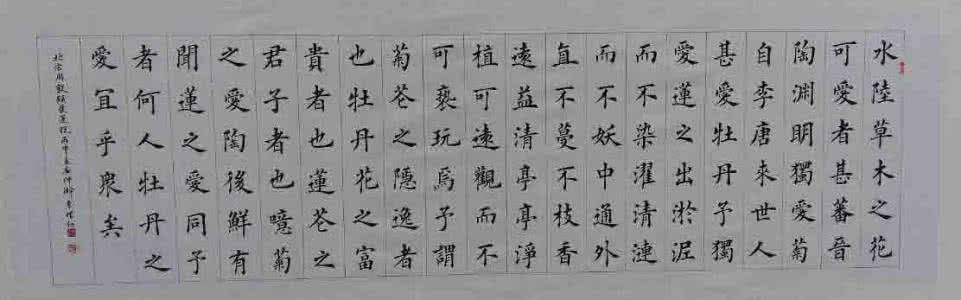 水陸草木之花
可愛者甚蕃晉
陶淵明獨愛菊
自李唐來世人
甚愛牡丹予獨
愛蓮之出淤泥
而不染濯清漣
而不妖中通外
直不蔓不枝香
遠益清亭亭淨
植可遠觀而不
可褻玩焉予謂
菊花之隱逸者
也牡丹花之富
貴者也蓮花之
君子者也噫菊
之愛陶後鮮有
聞蓮之愛同予
者何人牡丹之
愛宜乎眾矣
北宋周敦頤愛蓮說丙申